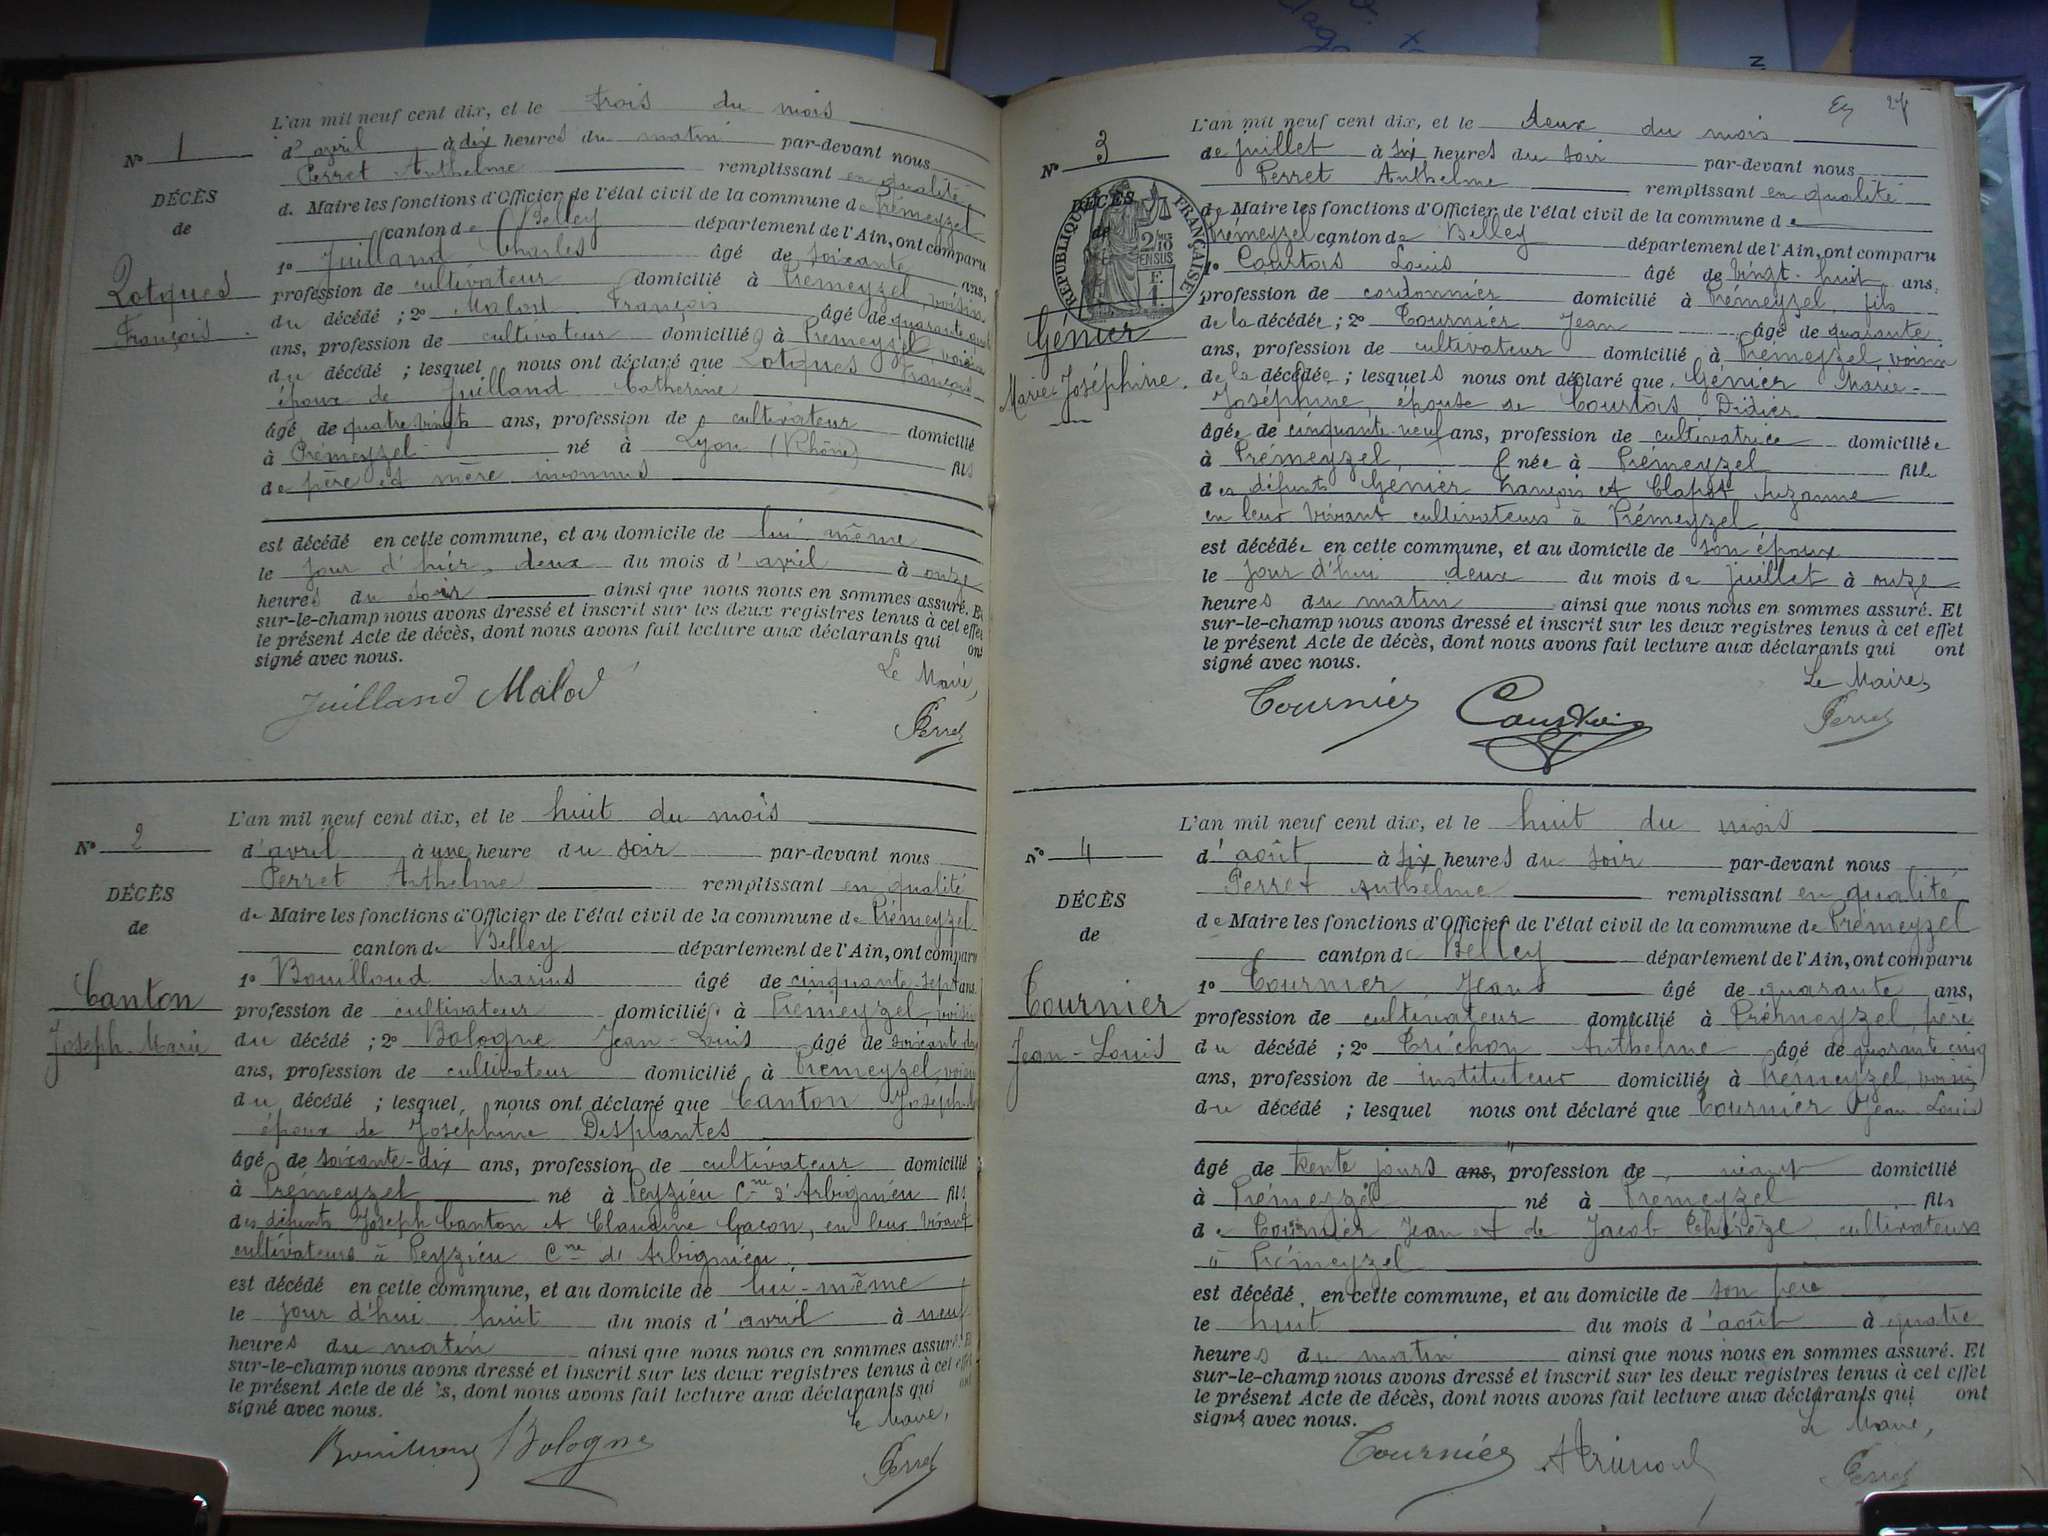 N° 1
DÉCÈS
de
Lotques
François
L'an mil neuf cent dix, et le trois du mois
d'avril à dix heures du matin par-devant nous
Perret Anthelme remplissant en qualité
de Maire les fonctions d'Officier de l'état civil de la commune de Prémeyzel
canton de Belley département de l'Ain, ont comparu
1° Juilland Charles âgé de soixante ans,
profession de cultivateur domicilié à Prémeyzel, voisin
du décédé ; 2° Malod François âgé de quarante
ans, profession de cultivateur domicilié à Prémeyzel, voisin
du décédé ; lesquels nous ont déclaré que Lotques François
époux de Juilland Catherine
âgé de quatre-vingts ans, profession de cultivateur domicilié
à Prémeyzel né à Lyon (Rhône) fils
de père et mère inconnus
est décédé en cette commune, et au domicile de lui même
le jour d'hier, deux du mois d'avril à onze
heures du soir ainsi que nous nous en sommes assuré. Et
sur-le-champ nous avons dressé et inscrit sur les deux registres tenus à cet effet
le présent Acte de décès, dont nous avons fait lecture aux déclarants qui ont
signé avec nous.
Le Maire,
Juilland Malod
Perret
N° 2
DÉCÈS
de
Canton
Joseph-Marie
L'an mil neuf cent dix, et le huit du mois
d'avril à une heure du soir par-devant nous
Perret Anthelme remplissant en qualité
de Maire les fonctions d'Officier de l'état civil de la commune de Prémeyzel
canton de Belley département de l'Ain, ont comparu
1° Bouilloud Marius âgé de cinquante-sept ans
profession de cultivateur domicilié à Prémeyzel, voisin
du décédé ; 2° Bologne Jean-Louis âgé de soixante
ans, profession de cultivateur domicilié à Prémeyzel, voisin
du décédé ; lesquel nous ont déclaré que Canton Joseph
époux de Joséphine Desplantes
âgé de soixante-dix ans, profession de cultivateur domicilié
à Prémeyzel né à Peyzieu Cne d'Arbignieu fils
des défunts Joseph Canton et Claudine Gacon, en leur vivant
cultivateurs à Peyzieu Cne d'Arbignieu
est décédé en cette commune, et au domicile de lui-même
le jour d'hui huit du mois d'avril à neuf
heures du matin ainsi que nous nous en sommes assuré. Et
sur-le-champ nous avons dressé et inscrit sur les deux registres tenus à cet effet
le présent Acte de décès, dont nous avons fait lecture aux déclarants qui ont
signé avec nous.
Le Maire,
Bologne
Perret
27
N° 3
DÉCÈS
de
RÉPUBLIQUE FRANÇAISE
Génier
Marie-Joséphine.
L'an mil neuf cent dix, et le deux du mois
de juillet à six heures du soir par-devant nous
Perret Anthelme remplissant en qualité
de Maire les fonctions d'Officier de l'état civil de la commune de
Prémeyzel canton de Belley département de l'Ain, ont comparu
1° Courtois Louis âgé de vingt-huit ans,
profession de cordonnier domicilié à Prémeyzel, fils
de la décédée ; 2° Tournier Jean âgé de quarante
ans, profession de cultivateur domicilié à Prémeyzel, voisin
de la décédée ; lesquels nous ont déclaré que Génier Marie-
Joséphine, épouse de Courtois Didier
âgée de cinquante-neuf ans, profession de cultivatrice domiciliée
à Prémeyzel, née à Prémeyzel fille
des défunts Génier François et Clapot Suzanne
en leur vivant cultivateurs à Prémeyzel
est décédée en cette commune, et au domicile de son époux
le jour d'hui deux du mois de juillet à onze
heures du matin ainsi que nous nous en sommes assuré. Et
sur-le-champ nous avons dressé et inscrit sur les deux registres tenus à cet effet
le présent Acte de décès, dont nous avons fait lecture aux déclarants qui ont
signé avec nous.
Le Maire,
Tournier Courtois
Perret
N° 4
DÉCÈS
de
Tournier
Jean-Louis
L'an mil neuf cent dix, et le huit du mois
d'août à six heures du soir par-devant nous
Perret Anthelme remplissant en qualité
de Maire les fonctions d'Officier de l'état civil de la commune de Prémeyzel
canton de Belley département de l'Ain, ont comparu
1° Tournier Jean âgé de quarante ans,
profession de cultivateur domicilié à Prémeyzel, père
du décédé ; 2° Trichon Anthelme âgé de quarante cinq
ans, profession de instituteur domicilié à Prémeyzel, voisin
du décédé ; lesquel nous ont déclaré que Tournier Jean Louis
âgé de trente jours ans, profession de néant domicilié
à Prémeyzel né à Prémeyzel fils
de Tournier Jean et de Jacob Thérèze, cultivateurs
à Prémeyzel
est décédé en cette commune, et au domicile de son père
le huit du mois d'août à quatre
heures du matin ainsi que nous nous en sommes assuré. Et
sur-le-champ nous avons dressé et inscrit sur les deux registres tenus à cet effet
le présent Acte de décès, dont nous avons fait lecture aux déclarants qui ont
signé avec nous.
Le Maire,
Tournier
Perret